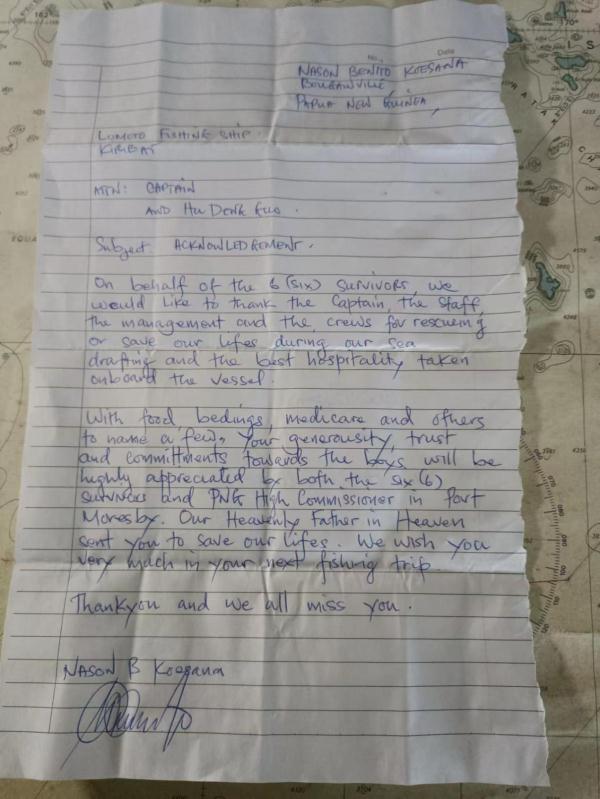 No. Date
NASON BENITO KOESANA
BOUGANVILLE,
PAPUA NEW GUINEA,
LOMOTO FISHING SHIP.
KIRIBAT
ATTN: CAPTAIN
AND HU DENK
Subject: ACKNOWLEDREMENT.
On behalf of the 6 (six) survivors, we
would like to thank the Captain, the staff,
the management and the crews for rescueing
or save our lifes during our sea
drafting and the best hospitality taken
onboard the vessel.
With food, bedings, medicare and others
to name a few, Your generousity, trust
and committments towards the boys will be
highly appreciated by both the six (6)
survivors and PNG High Commissioner in Port
Moresby. Our Heavenly Father in Heaven
sent you to save our lifes. We wish you
very much in your next fishing trip.
Thankyou and we all miss you.
NASON B Koesana